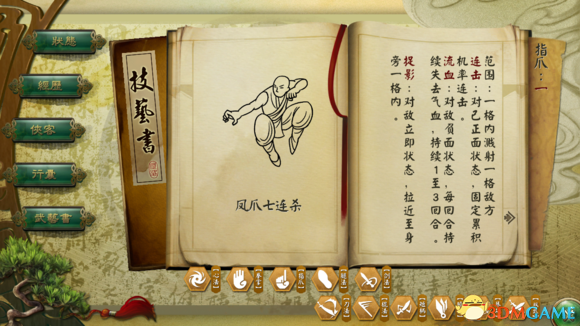 狀態
經歷
俠客
行囊
武藝書
技藝書
凤爪七连杀
指爪：一
范围：一格内溅射一格敌方
连击：对己正面状态，固定累积
机率连击。
流血：对敌负面状态，每回合持
续失去气血，持续1至3回合。
捉影：对敌立即状态，拉近至身
旁一格内。
3DMGAME